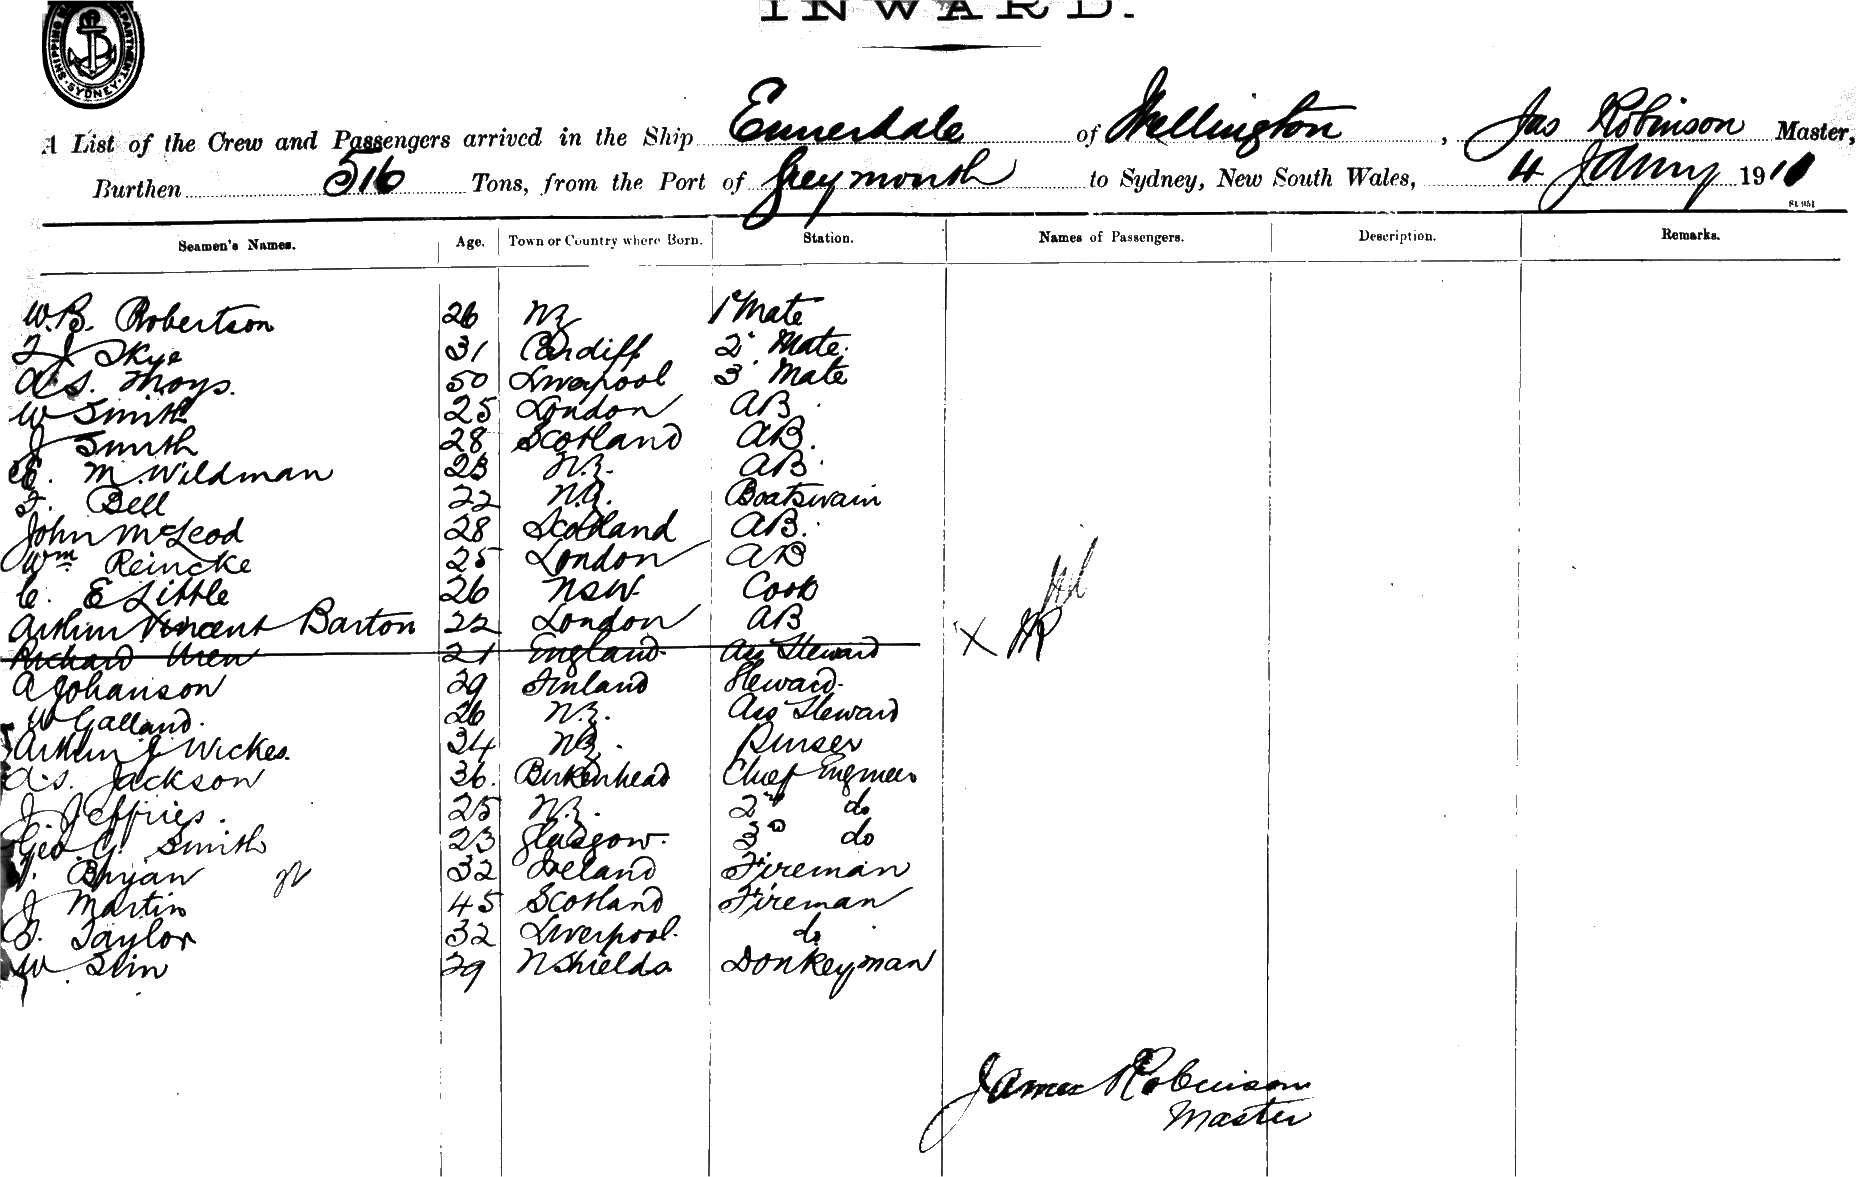 INWARD.
SHIPPING DEPARTMENT. SYDNEY
A List of the Crew and Passengers arrived in the Ship Ennerdale of Wellington, Jas Robinson Master,
Burthen 516 Tons, from the Port of Greymouth to Sydney, New South Wales, 4 Janry 1911
Seamen's Names. Age. Town or Country where Born. Station. Names of Passengers. Description. Remarks.
W.B. Robertson 26 NZ 1st Mate
F J Skye 31 Cardiff 2d Mate.
A S. Moys. 50 Liverpool 3d Mate
W Smith 25 London AB.
J Smith 28 Scotland AB.
E. M. Wildman 23 N.Z. AB.
F. Bell 22 N.Z. Boatswain
John McLeod 28 Scotland AB.
Wm Reincke 25 London AB
C. E Little 26 NSW. Cook
Arthur Vincent Barton 22 London AB
Richard Uren 21 England. Ass Steward X
A Johanson 29 Finland Steward.
W Galland. 26 N.Z. Ass Steward
Arthur J Wickes. 34 NZ. Purser
A.S. Jackson 36. Birkenhead Chief Engineer
J. Jeffries. 25 N.Z. 2nd do
Geo. G. Smith 23 Glasgow. 3d do
Bryan 32 Ireland Fireman
J Martin 45 Scotland Fireman
Taylor 32 Liverpool. do
W. 29 N Shields Donkeyman
James Robinson
Master